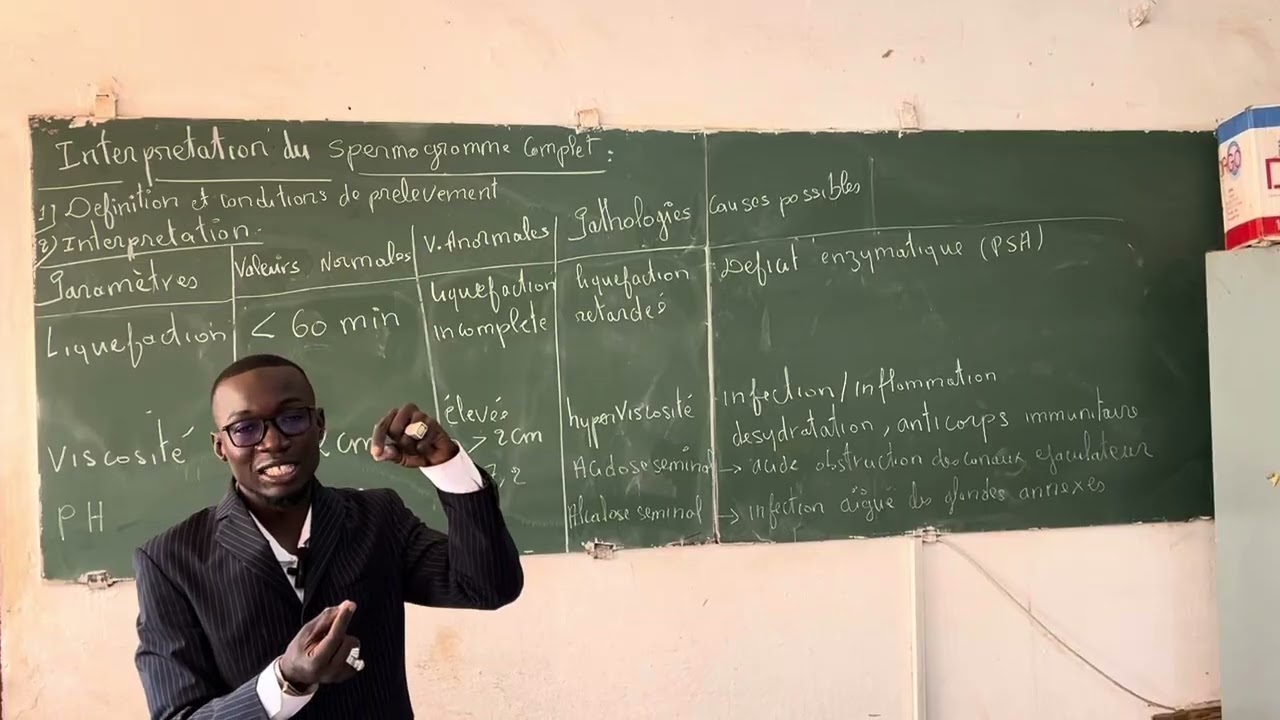 Interpretation du spermogramme Complet :
1) Definition et conditions de prelevement
2) Interpretation.
Paramètres Valeurs Normales V. Anormales Pathologies Causes possibles
Liquefaction < 60 min liquefaction incomplete liquefaction retardée Deficit enzymatique (PSA)
Viscosité 2 cm élevée > 2 cm hyperviscosité infection/inflammation
desydratation, anticorps immunitaire
PH 7,2 Acidose seminal → acide obstruction des canaux ejaculateur
Alcalose seminal → infection aïgue des glandes annexes